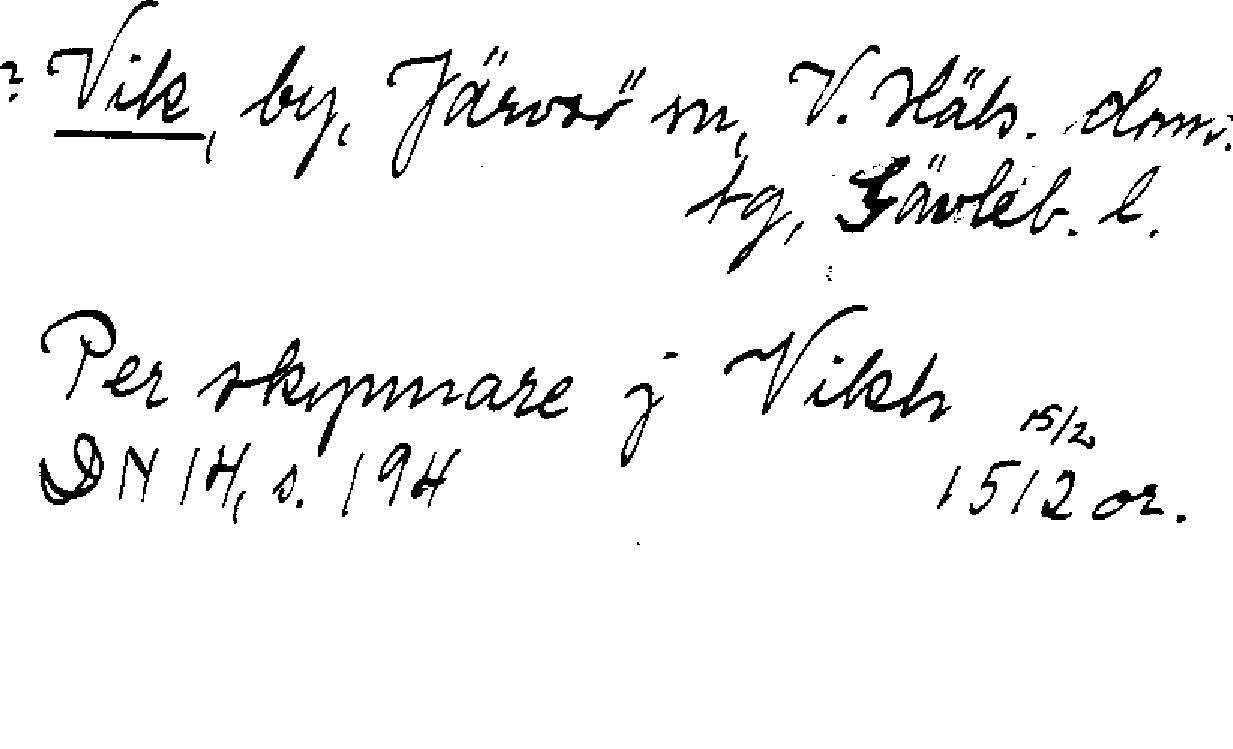 ? Vik, by, Järvsö sn, V. Häls. doms.
tg, Gävleb. l.
Per skypmare j Vikh
15/2
DN 14, s. 194 1512 or.